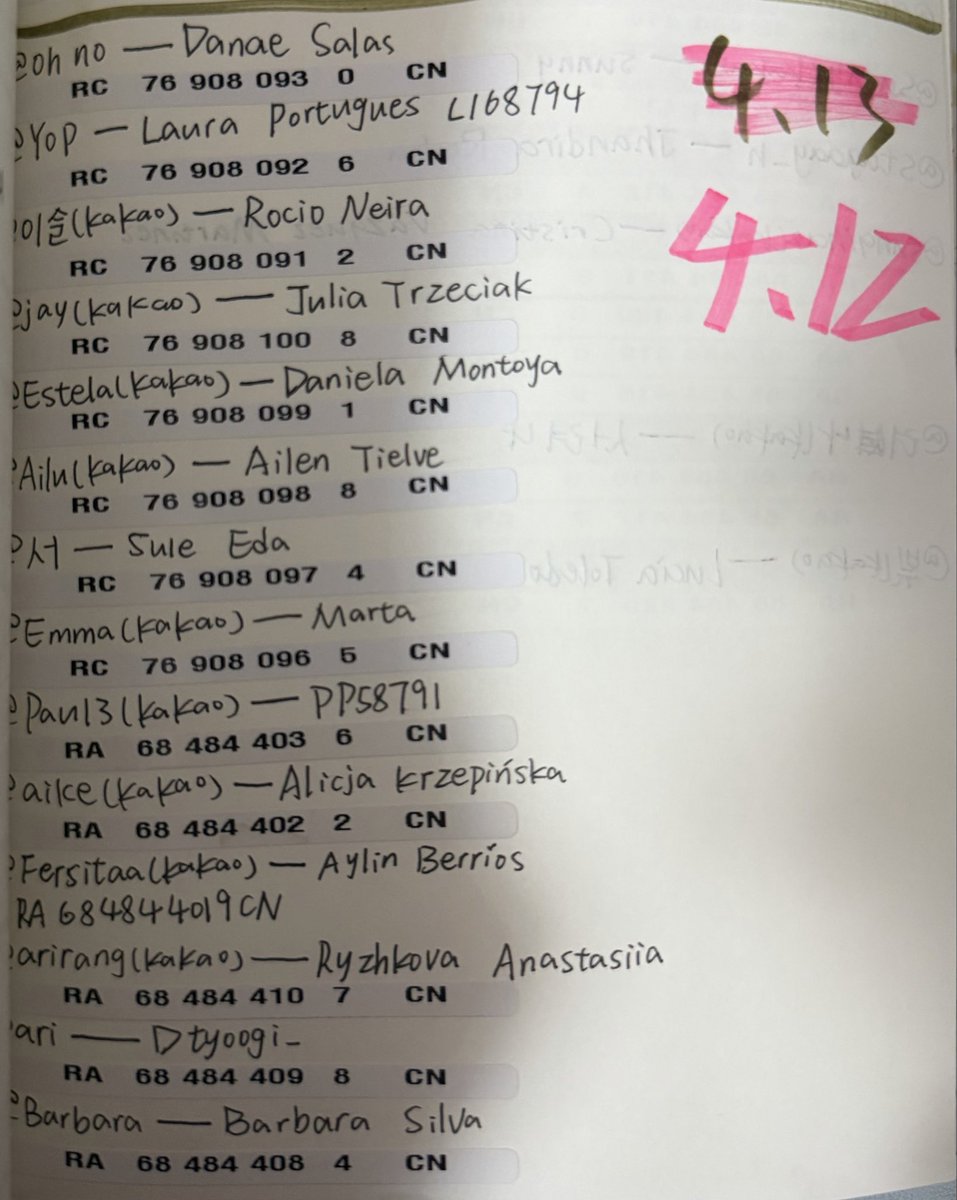 @oh no — Danae Salas
RC 76 908 093 0 CN
@Yop — Laura Portugues L168794
RC 76 908 092 6 CN
@이슬(kakao) — Rocio Neira
RC 76 908 091 2 CN
@jay(kakao) — Julia Trzeciak
RC 76 908 100 8 CN
@Estela(kakao) — Daniela Montoya
RC 76 908 099 1 CN
@Ailu(kakao) — Ailen Tielve
RC 76 908 098 8 CN
@서 — Sule Eda
RC 76 908 097 4 CN
@Emma(kakao) — Marta
RC 76 908 096 5 CN
@Paul3(kakao) — PP58791
RA 68 484 403 6 CN
@ailce(kakao) — Alicja krzepińska
RA 68 484 402 2 CN
@Fersitaa(kakao) — Aylin Berríos
RA 684844019CN
@arirang(kakao) — Ryzhkova Anastasiia
RA 68 484 410 7 CN
@ari — Dtyoogi_
RA 68 484 409 8 CN
@Barbara — Barbara Silva
RA 68 484 408 4 CN
4.13
4.12